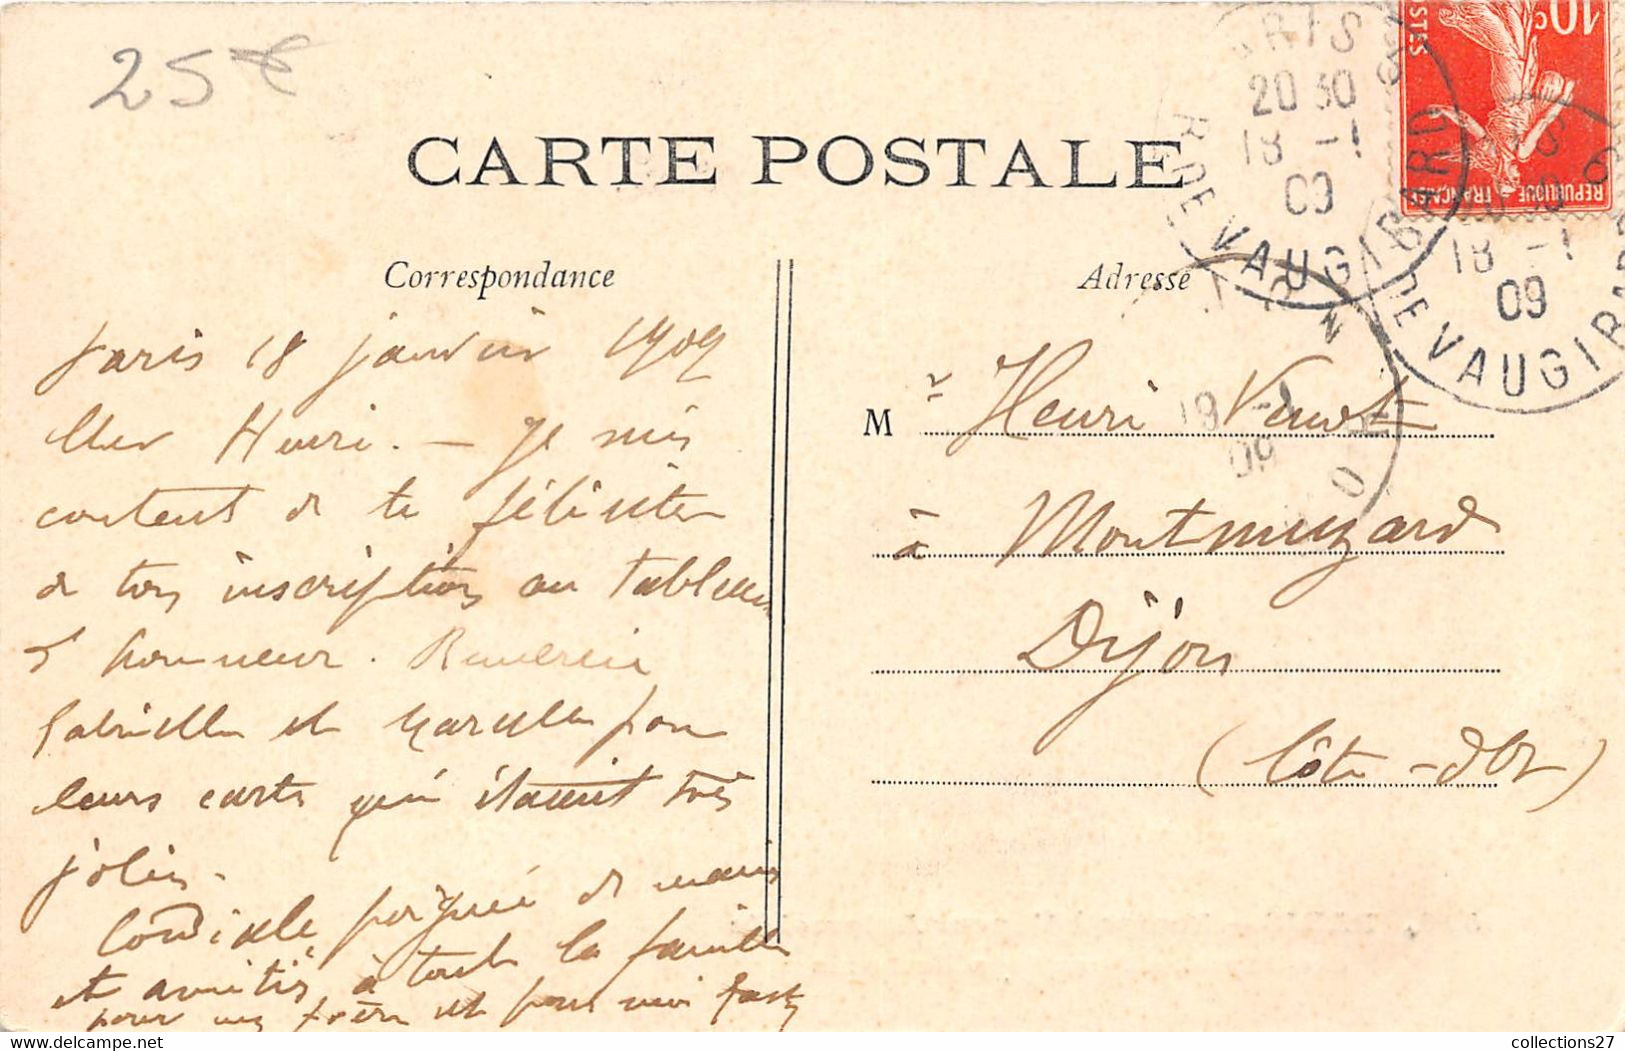 25€
CARTE POSTALE
10c
POSTES
REPUBLIQUE FRANÇAISE
PARIS
20 30
18 -1
09
R DE VAUGIRARD
PARIS
18 -1
09
R DE VAUGIRARD
19 -1
09
Correspondance
Paris 18 janvier 1909
Cher Henri. – Je suis
content de te féliciter
de ton inscription au tableau
d'honneur. Remercie
Gabrielle et Marcelle pour
leurs cartes qui étaient très
jolies.
Cordiale poignée de mains
et amitiés à toute la famille
pour mon frère et pour moi
Adresse
Mr Henri
à Montmuzard
Dijon
(Côte-d'Or)
collections27